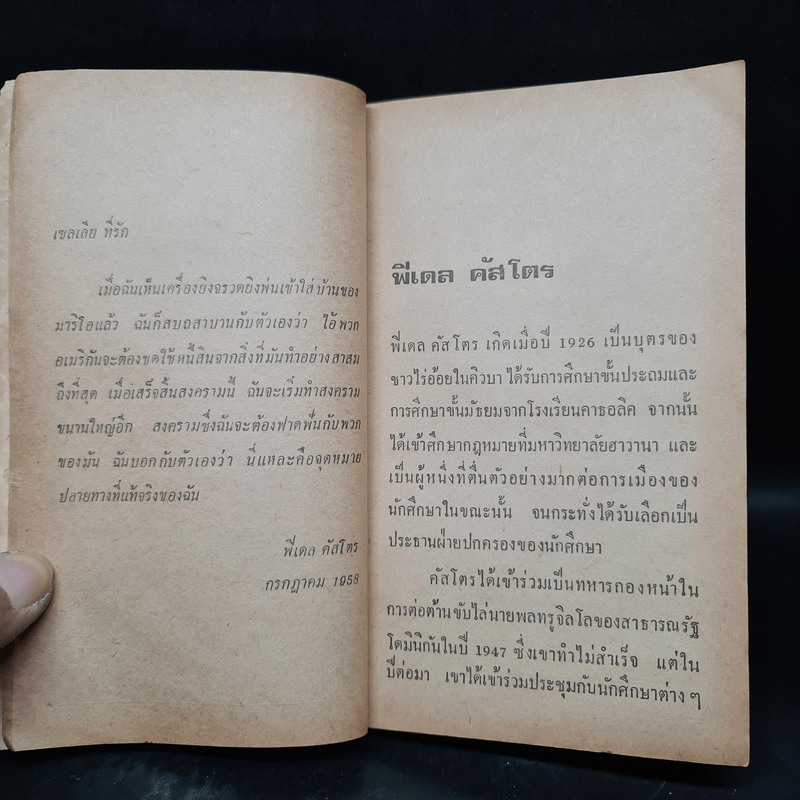 เซลเลีย ที่รัก
เมื่อฉันเห็นเครื่องยิงจรวดยิงพ่นเข้าใส่บ้านของ
มาริโอแล้ว ฉันก็สบถสาบานกับตัวเองว่า ไอ้พวก
อเมริกันจะต้องชดใช้หนี้สินจากสิ่งที่มันทำอย่างสาสม
ถึงที่สุด เมื่อเสร็จสิ้นสงครามนี้ ฉันจะเริ่มทำสงคราม
ขนานใหญ่อีก สงครามซึ่งฉันจะต้องฟาดฟันกับพวก
ของมัน ฉันบอกกับตัวเองว่า นี่แหละคือจุดหมาย
ปลายทางที่แท้จริงของฉัน
ฟีเดล คัสโตร
กรกฎาคม 1958
ฟีเดล คัสโตร
ฟีเดล คัสโตร เกิดเมื่อปี 1926 เป็นบุตรของ
ชาวไร่อ้อยในคิวบา ได้รับการศึกษาขั้นประถมและ
การศึกษาขั้นมัธยมจากโรงเรียนคาธอลิค จากนั้น
ได้เข้าศึกษากฎหมายที่มหาวิทยาลัยฮาวานา และ
เป็นผู้หนึ่งที่ตื่นตัวอย่างมากต่อการเมืองของ
นักศึกษาในขณะนั้น จนกระทั่งได้รับเลือกเป็น
ประธานฝ่ายปกครองของนักศึกษา
คัสโตรได้เข้าร่วมเป็นทหารกองหน้าใน
การต่อต้านขับไล่นายพลทรูจิลโลของสาธารณรัฐ
โดมินิกันในปี 1947 ซึ่งเขาทำไม่สำเร็จ แต่ใน
ปีต่อมา เขาได้เข้าร่วมประชุมกับนักศึกษาต่าง ๆ